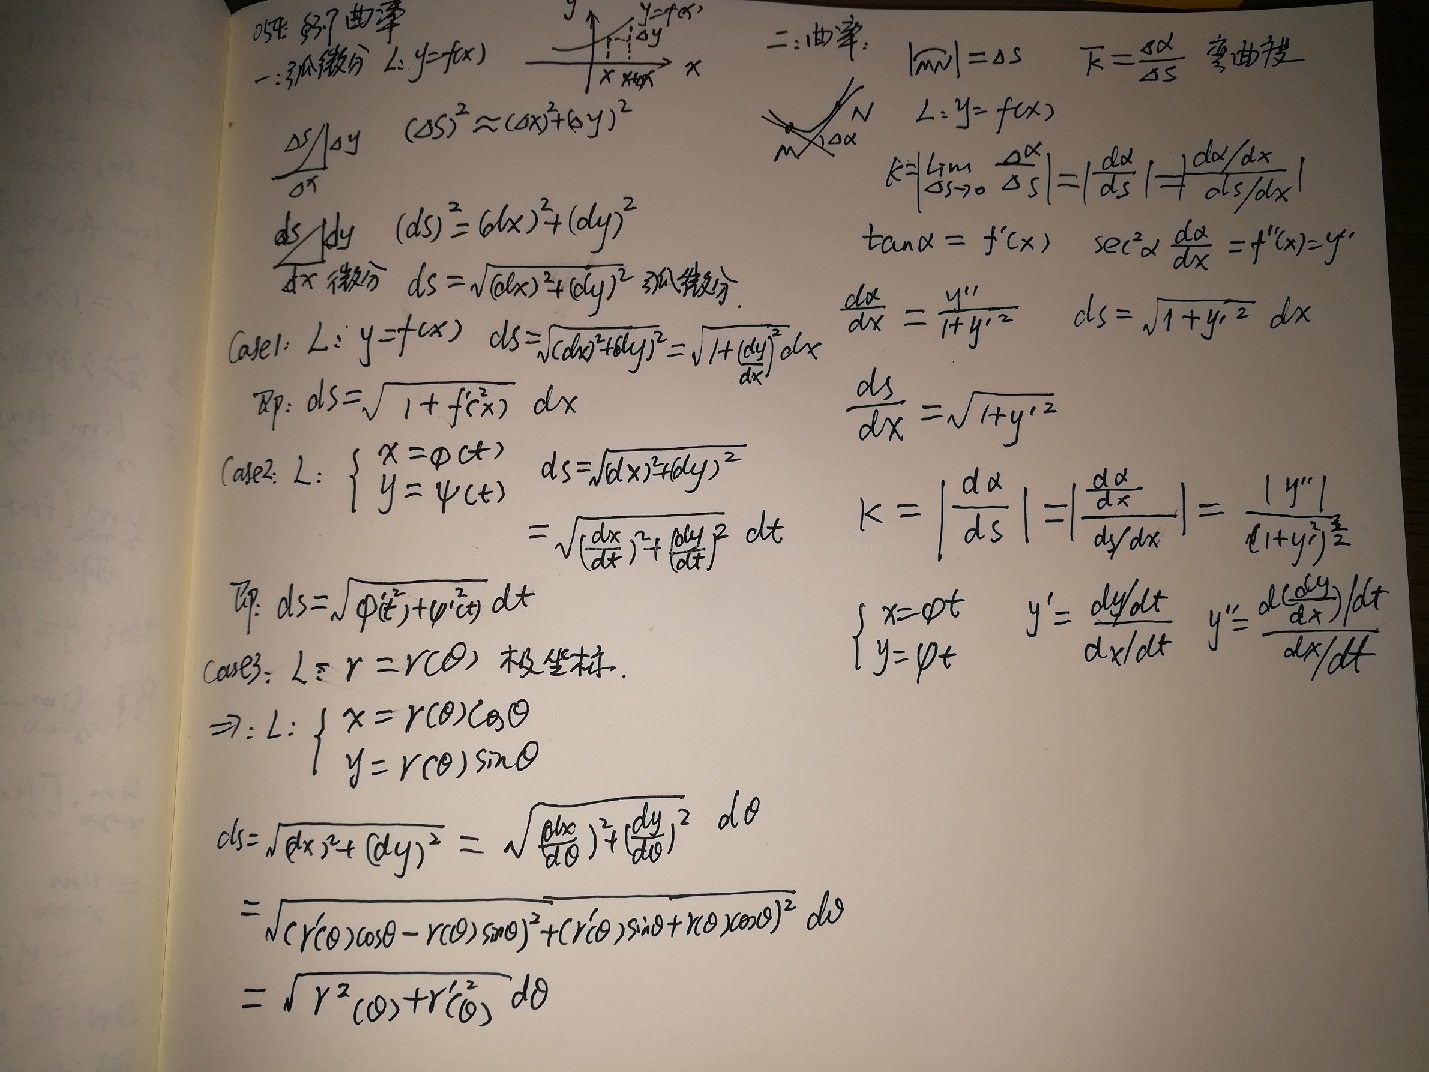 曲率
一:弧微分 L: y=f(x)
y
y=f(x)
Δy
x x+Δx x
ΔS Δy
Δx
(ΔS)²≈(Δx)²+(Δy)²
ds dy
dx 微分
(ds)²=(dx)²+(dy)²
ds=√((dx)²+(dy)²) 弧微分.
Case1: L: y=f(x) ds=√((dx)²+(dy)²)=√(1+(dy/dx)²)dx
即: ds=√(1+f'²(x)) dx
Case2: L: { x=φ(t) y=ψ(t) ds=√((dx)²+(dy)²)
=√((dx/dt)²+(dy/dt)²) dt
即: ds=√(φ'²(t)+ψ'²(t)) dt
Case3: L: r=r(θ) 极坐标.
⇒: L: { x=r(θ)cosθ
y=r(θ)sinθ
ds=√((dx)²+(dy)²) = √((dx/dθ)²+(dy/dθ)²) dθ
=√((r'(θ)cosθ-r(θ)sinθ)²+(r'(θ)sinθ+r(θ)cosθ)²) dθ
=√(r²(θ)+r'²(θ)) dθ
二:曲率: |MN|=ΔS k̄=Δα/ΔS 弯曲度
M N Δα
L: y=f(x)
k=|lim ΔS→0 Δα/ΔS|=|dα/ds|=|dα/dx / ds/dx|
tanα=f'(x) sec²α dα/dx=f''(x)=y''
dα/dx=y''/(1+y'²) ds=√(1+y'²) dx
ds/dx=√(1+y'²)
K=|dα/ds|=|(dα/dx)/(ds/dx)|=|y''|/(1+y'²)^(3/2)
{ x=φt y=ψt y'=(dy/dt)/(dx/dt) y''=(d(dy/dx)/dt)/(dx/dt)